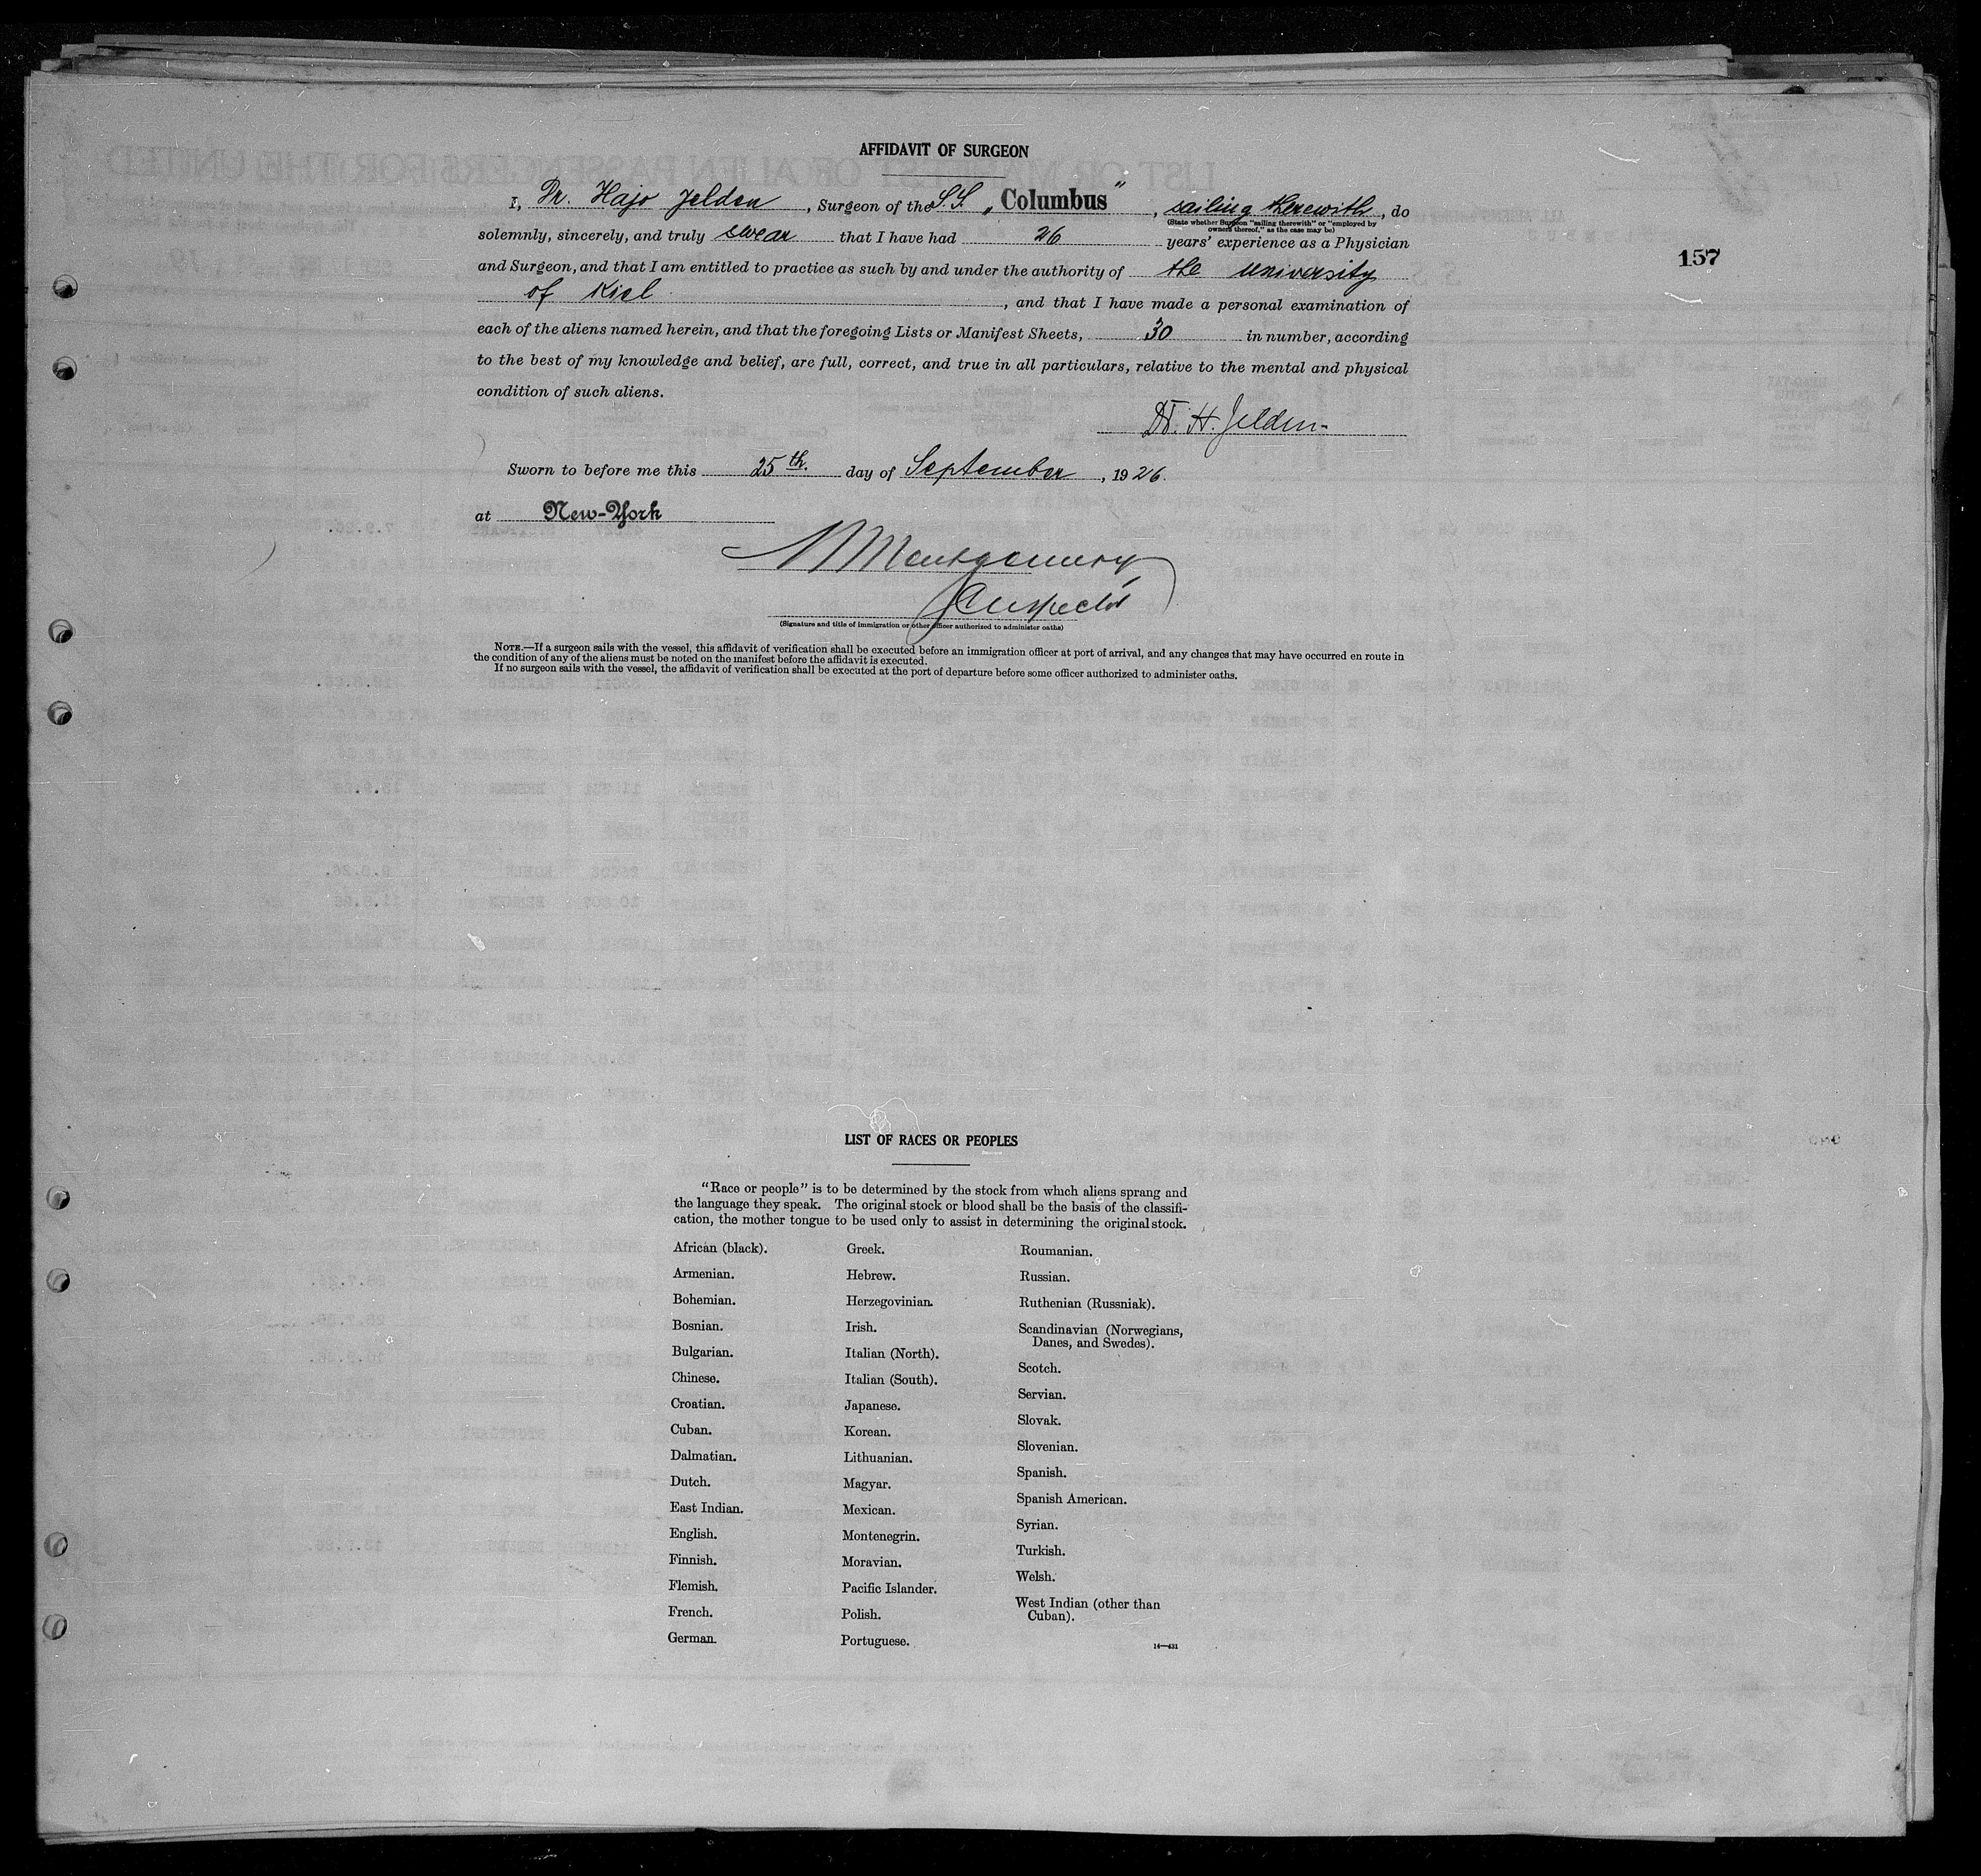 AFFIDAVIT OF SURGEON
I, Dr. Hajo Jelden, Surgeon of the S.S. „Columbus", sailing therewith, do
(State whether Surgeon "sailing therewith" or "employed by
owners thereof," as the case may be)
solemnly, sincerely, and truly swear that I have had 26 years' experience as a Physician
157
and Surgeon, and that I am entitled to practice as such by and under the authority of the university
of Kiel, and that I have made a personal examination of
each of the aliens named herein, and that the foregoing Lists or Manifest Sheets, 30 in number, according
to the best of my knowledge and belief, are full, correct, and true in all particulars, relative to the mental and physical
condition of such aliens.
Dr. H. Jelden
Sworn to before me this 25th. day of September, 1926.
at New-York
Montgomery
Inspector
(Signature and title of immigration or other officer authorized to administer oaths)
NOTE.—If a surgeon sails with the vessel, this affidavit of verification shall be executed before an immigration officer at port of arrival, and any changes that may have occurred en route in
the condition of any of the aliens must be noted on the manifest before the affidavit is executed.
If no surgeon sails with the vessel, the affidavit of verification shall be executed at the port of departure before some officer authorized to administer oaths.
LIST OF RACES OR PEOPLES
"Race or people" is to be determined by the stock from which aliens sprang and
the language they speak. The original stock or blood shall be the basis of the classifi-
cation, the mother tongue to be used only to assist in determining the original stock.
African (black).
Armenian.
Bohemian.
Bosnian.
Bulgarian.
Chinese.
Croatian.
Cuban.
Dalmatian.
Dutch.
East Indian.
English.
Finnish.
Flemish.
French.
German.
Greek.
Hebrew.
Herzegovinian.
Irish.
Italian (North).
Italian (South).
Japanese.
Korean.
Lithuanian.
Magyar.
Mexican.
Montenegrin.
Moravian.
Pacific Islander.
Polish.
Portuguese.
Roumanian.
Russian.
Ruthenian (Russniak).
Scandinavian (Norwegians,
Danes, and Swedes).
Scotch.
Servian.
Slovak.
Slovenian.
Spanish.
Spanish American.
Syrian.
Turkish.
Welsh.
West Indian (other than
Cuban).
14—431